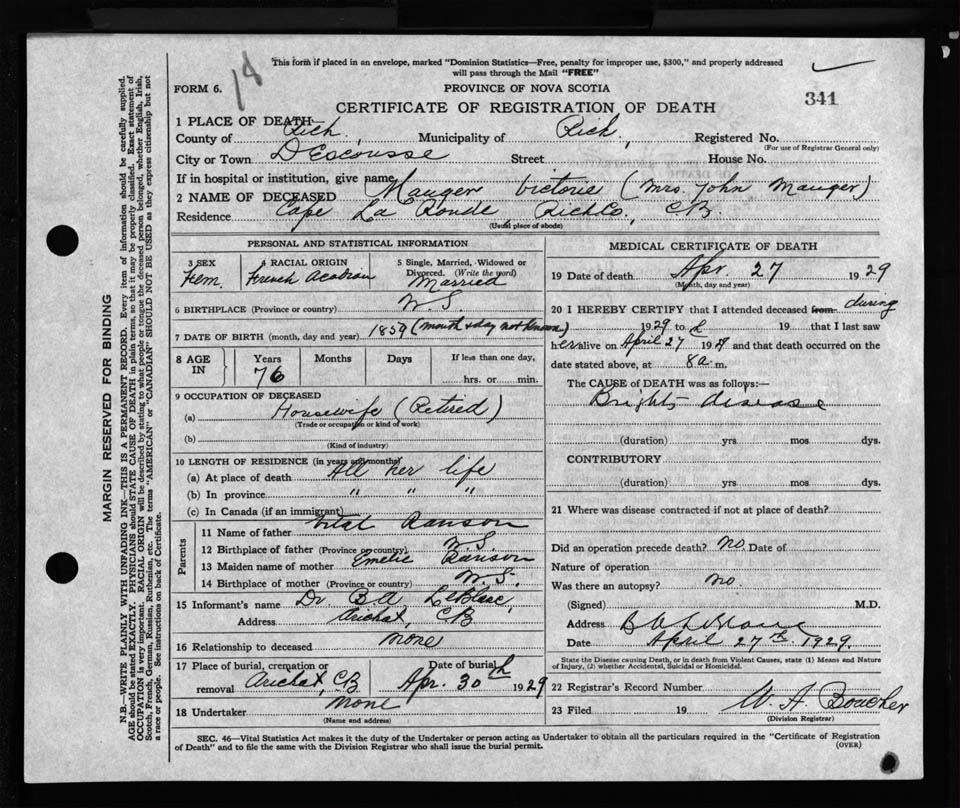 This form if placed in an envelope, marked "Dominion Statistics—Free, penalty for improper use, $300," and properly addressed
will pass through the Mail "FREE"
18
FORM 6.
PROVINCE OF NOVA SCOTIA
341
CERTIFICATE OF REGISTRATION OF DEATH
1 PLACE OF DEATH
County of Rich, Municipality of Rich, Registered No.
(For use of Registrar General only)
City or Town D'Escousse Street House No.
If in hospital or institution, give name
2 NAME OF DECEASED Mauger Victorie (Mrs. John Mauger)
Residence Cape La Ronde, Rich Co., C.B.
(Usual place of abode)
PERSONAL AND STATISTICAL INFORMATION
3 SEX Fem. 4 RACIAL ORIGIN French Acadian 5 Single, Married, Widowed or Divorced. (Write the word) Married
6 BIRTHPLACE (Province or country) N.S.
7 DATE OF BIRTH (month, day and year) 1859 (month & day not known)
8 AGE IN Years 76 Months Days If less than one day, hrs. or min.
9 OCCUPATION OF DECEASED
(a) Housewife (Retired)
(Trade or occupation or kind of work)
(b)
(Kind of industry)
10 LENGTH OF RESIDENCE (in years and months)
(a) At place of death All her life
(b) In province " " "
(c) In Canada (if an immigrant)
Parents
11 Name of father Vital Ranson
12 Birthplace of father (Province or country) N.S.
13 Maiden name of mother Emelie Ranson
14 Birthplace of mother (Province or country) N.S.
15 Informant's name Dr. B.A. LeBlanc,
Address Arichat, C.B.
16 Relationship to deceased None
17 Place of burial, cremation or removal Arichat, C.B. Date of burial Apr. 30th 1929
18 Undertaker None
(Name and address)
MEDICAL CERTIFICATE OF DEATH
19 Date of death Apr. 27 1929
(Month, day and year)
20 I HEREBY CERTIFY that I attended deceased from during
1929 to 19 that I last saw
her alive on April 27 1929 and that death occurred on the
date stated above, at 8 a. m.
The CAUSE of DEATH was as follows:—
Brights disease
(duration) yrs. mos dys.
CONTRIBUTORY
(duration) yrs. mos dys.
21 Where was disease contracted if not at place of death?
Did an operation precede death? No Date of
Nature of operation
Was there an autopsy? No.
(Signed) M.D.
Address B A LeBlanc
Date April 27th 1929.
State the Disease causing Death, or in death from Violent Causes, state (1) Means and Nature
of Injury, (2) whether Accidental, Suicidal or Homicidal.
22 Registrar's Record Number
23 Filed 19 W. A. Boucher
(Division Registrar)
SEC. 46—Vital Statistics Act makes it the duty of the Undertaker or person acting as Undertaker to obtain all the particulars required in the "Certificate of Registration
of Death" and to file the same with the Division Registrar who shall issue the burial permit.
(OVER)
MARGIN RESERVED FOR BINDING
N.B.—WRITE PLAINLY WITH UNFADING INK—THIS IS A PERMANENT RECORD. Every item of information should be carefully supplied.
AGE should be stated EXACTLY. PHYSICIANS should STATE CAUSE OF DEATH in plain terms, so that it may be properly classified. Exact statement of
OCCUPATION is very important. RACIAL ORIGIN will be described by stating to what people or tongue the deceased person belonged, whether English, Irish,
Scotch, French, German, Russian, Ruthenian, etc. The terms "AMERICAN" or "CANADIAN" SHOULD NOT BE USED as they express citizenship but not
a race or people. See instructions on back of Certificate.